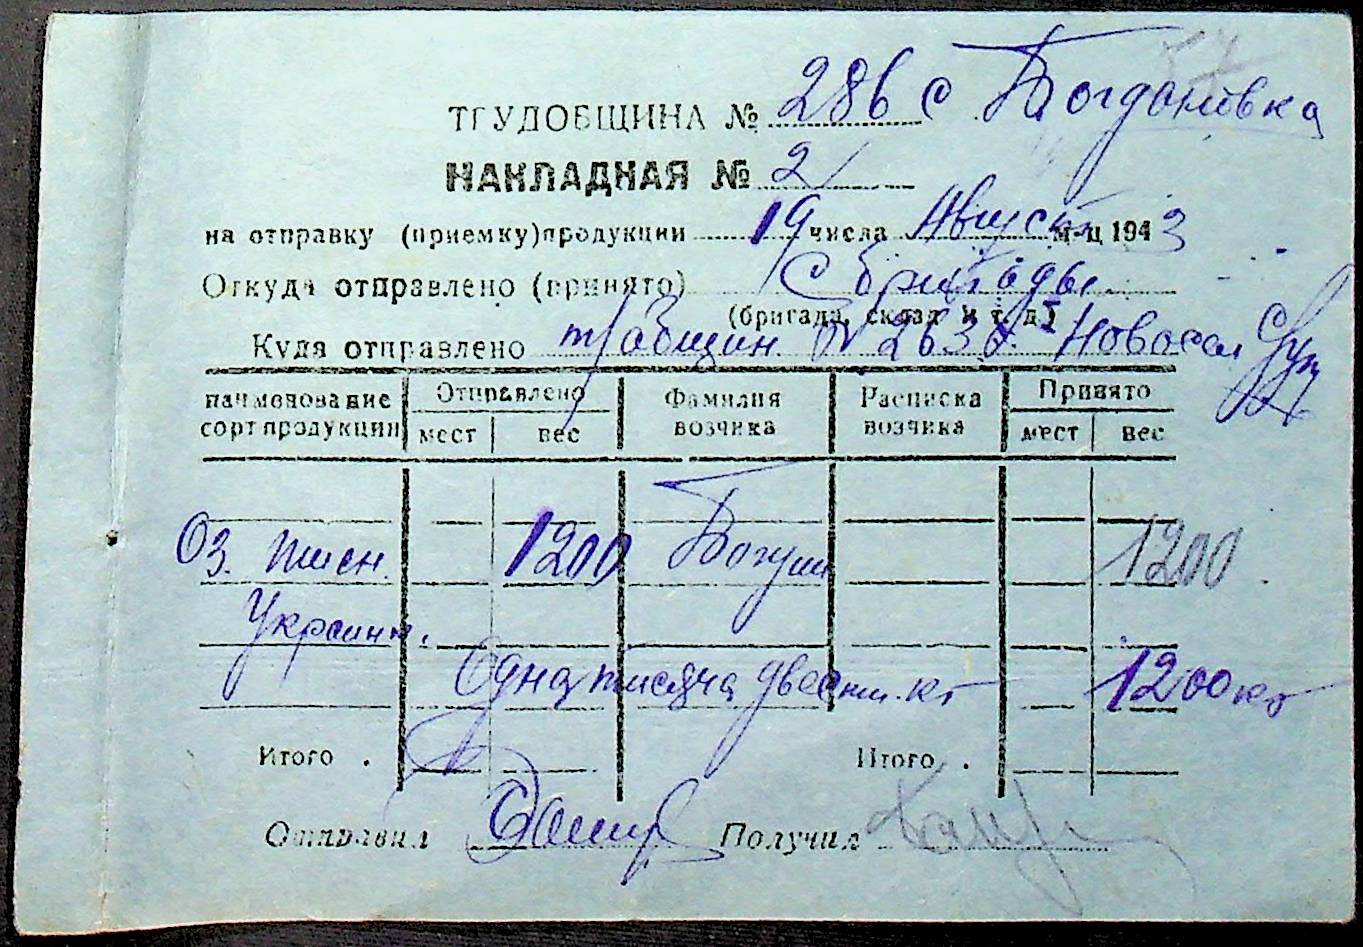 ТРУДОБЩИНА № 286 с Богдановка
НАКЛАДНАЯ № 2
на отправку (приемку) продукции 19 числа Август м-ц 1943
Откуда отправлено (принято) С бригады
(бригада, склад и т. д.)
Куда отправлено т/общин. N 263
наименование сорт продукции Отправлено Фамилия возчика Расписка возчика Принято
мест вес мест вес
Оз. пшен. 1200 1200
Украинк.
Одна тысяча двести кг 1200 кг
Итого . Итого .
Отправил Получил